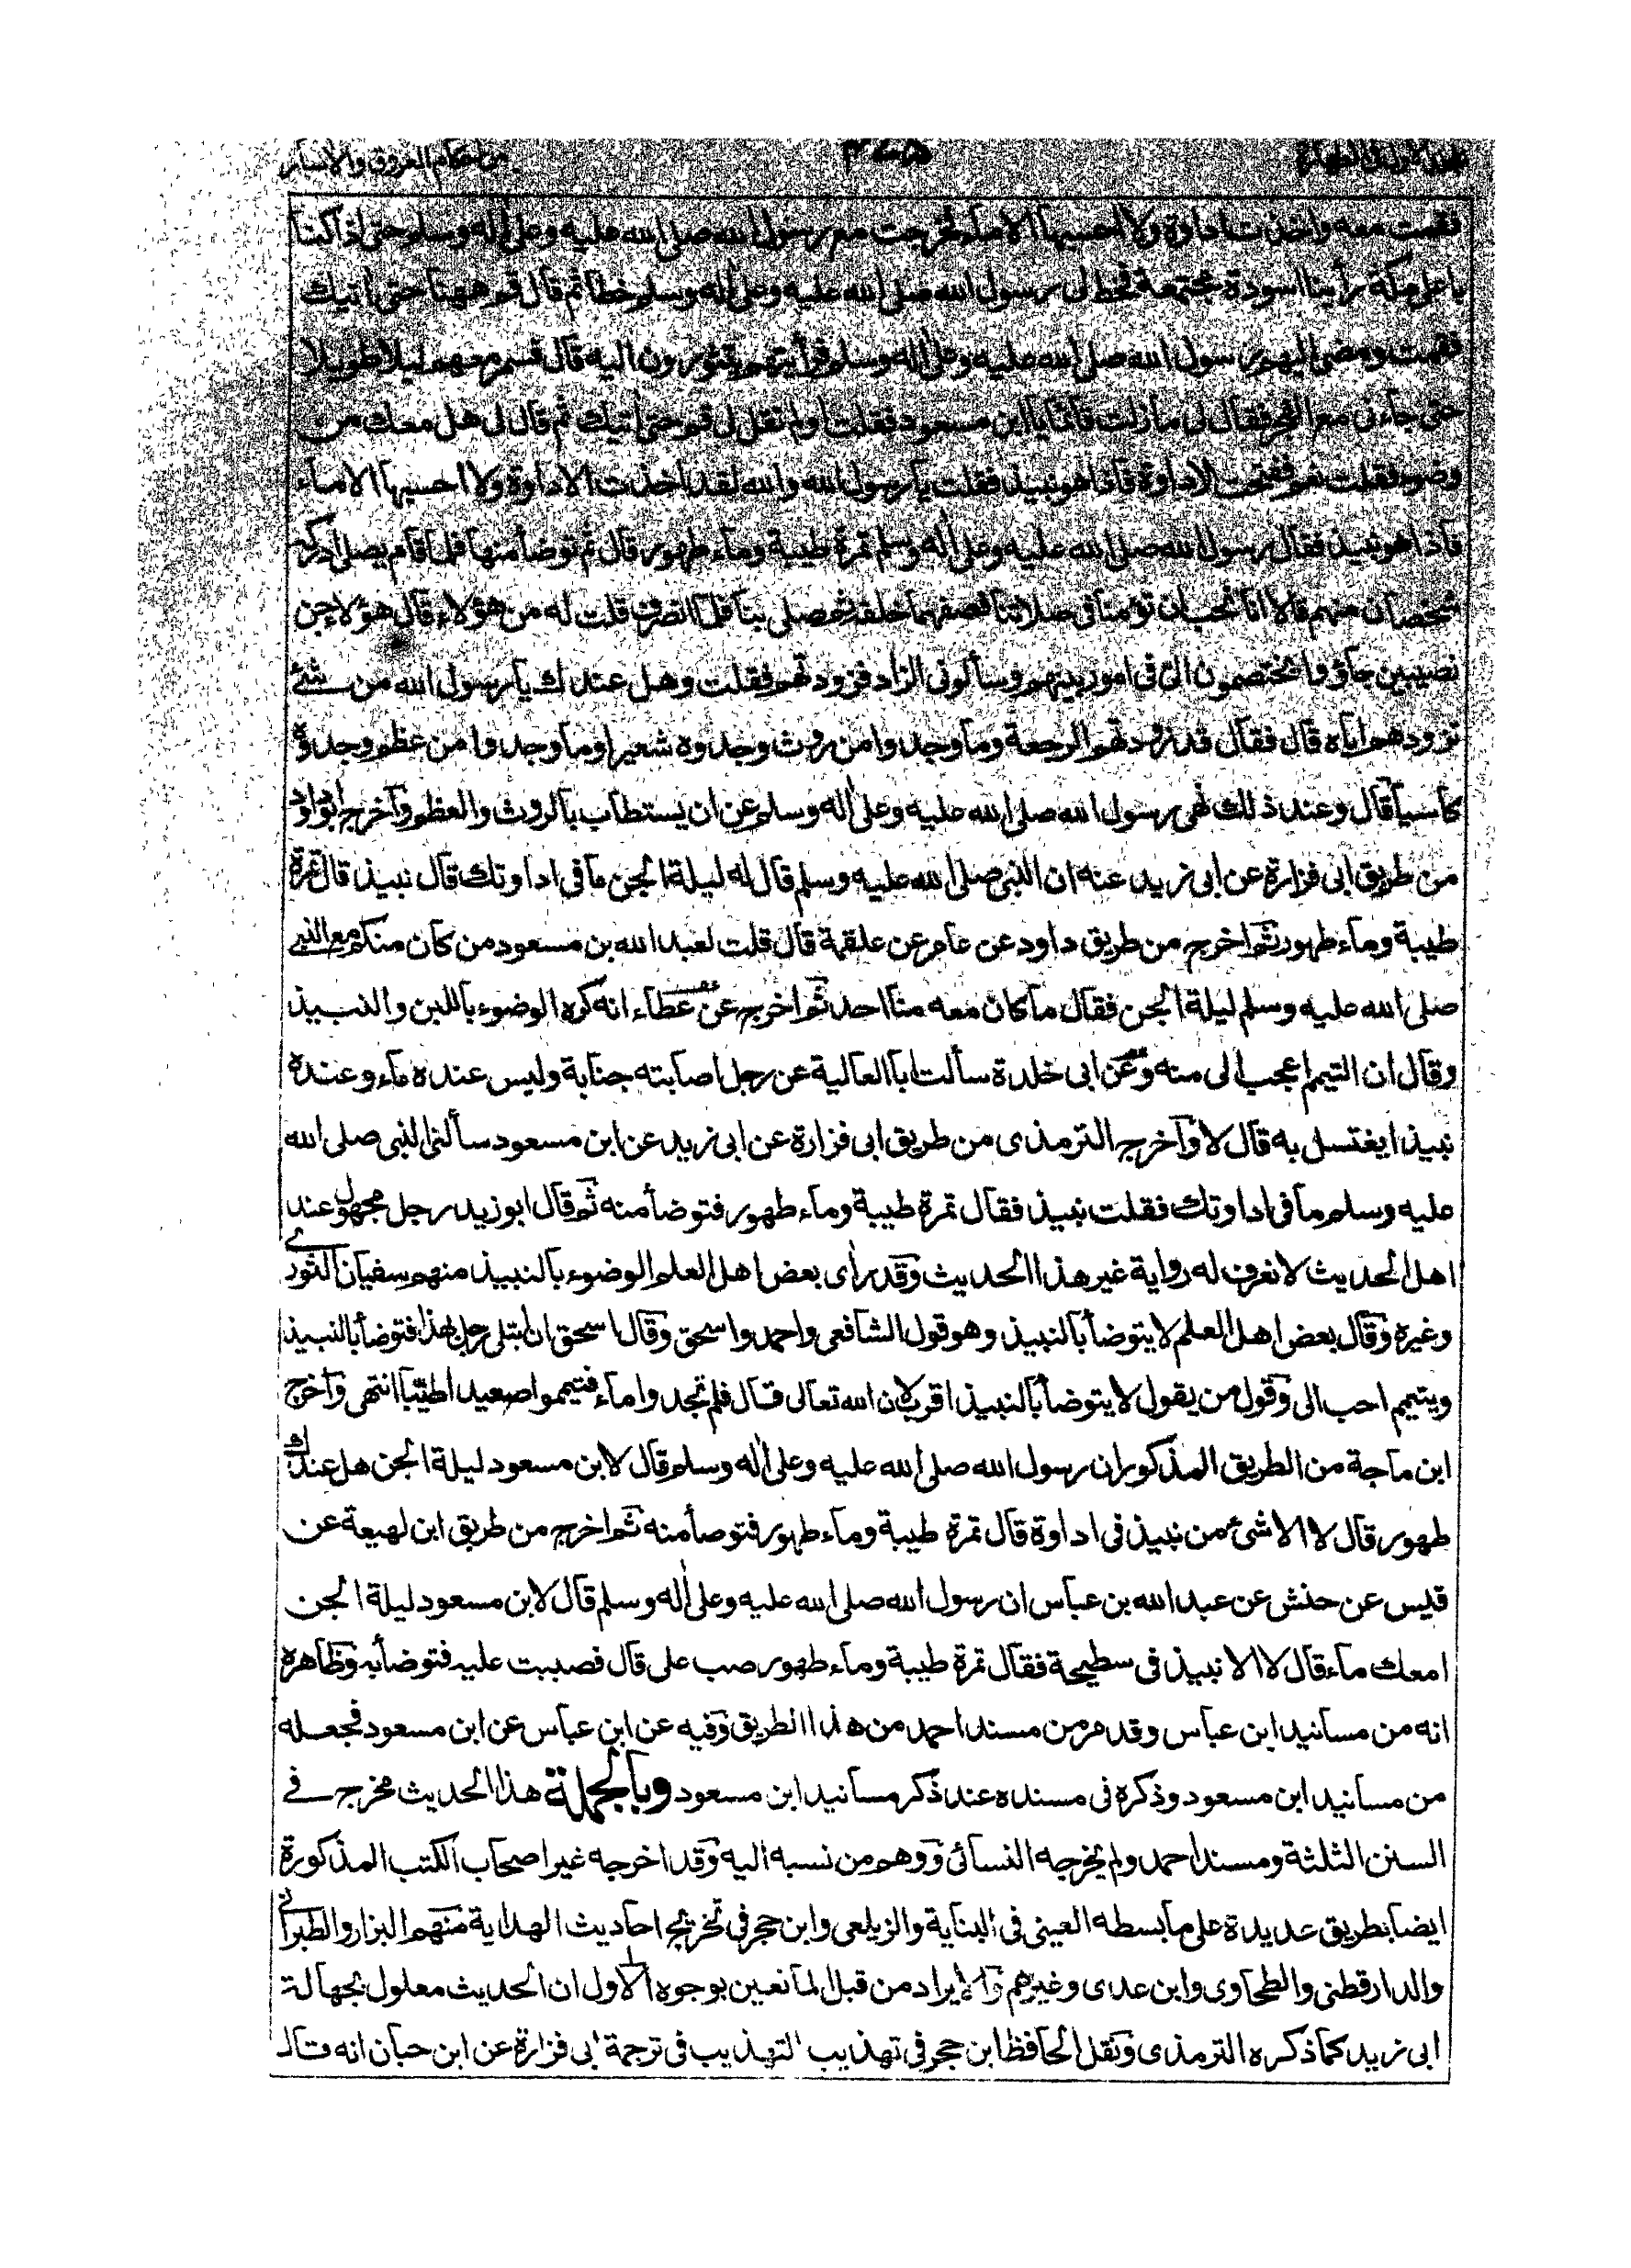 من احكام العروق والاسار
فقمت معه واخذت اداوة ولا احسبها الا ماء فخرجت مع رسول الله صلى الله عليه وعلى اله وسلم حتى اذا كنا
باعلى مكة رأينا اسودة مجتمعة فخط لى رسول الله صلى الله عليه وعلى اله وسلم خطا ثم قال قم ههنا حتى اتيك
فقمت ومضى اليهم رسول الله صلى الله عليه وعلى اله وسلم فرأيتهم يتثورون اليه قال فسمر معهم ليلا طويلا
حتى جاءنى مع الفجر فقال لى ما زلت قائما يا ابن مسعود فقلت او لم تقل لى قم حتى اتيك ثم قال لى هل معك من
وضوء فقلت نعم ففتحت الاداوة فاذا هو نبيذ فقلت يا رسول الله والله لقد اخذت الاداوة ولا احسبها الا ماء
فاذا هو نبيذ فقال رسول الله صلى الله عليه وعلى اله وسلم تمرة طيبة وماء طهور قال ثم توضأ منها فلما قام يصلى ادركه
شخصان منهم قالا انا نحب ان تؤمنا فى صلاتنا فصفهما خلفه ثم صلى بنا فلما انصرف قلت له من هؤلاء قال هؤلاء جن
نصيبين جاؤوا يختصمون الى فى امور بينهم وسألونى الزاد فزودتهم فقلت وهل عندك يا رسول الله من شئ
تزودهم اياه قال فقال قد زودتهم الرجعة وما وجدوا من روث وجدوه شعيرا وما وجدوا من عظم وجدوه
كاسيا قال وعند ذلك نهى رسول الله صلى الله عليه وعلى اله وسلم عن ان يستطاب بالروث والعظم واخرج ابو داود
من طريق ابى فزارة عن ابى زيد عنه ان النبى صلى الله عليه وسلم قال له ليلة الجن ما فى اداوتك قال نبيذ قال تمرة
طيبة وماء طهور ثم اخرج من طريق داود عن عامر عن علقمة قال قلت لعبد الله بن مسعود من كان منكم مع النبى
صلى الله عليه وسلم ليلة الجن فقال ما كان معه منا احد ثم اخرج عن عطاء انه كره الوضوء باللبن والنبيذ
وقال ان التيمم اعجب الى منه وعن ابى خلدة سألت ابا العالية عن رجل اصابته جنابة وليس عنده ماء وعنده
نبيذ ايغتسل به قال لا واخرج الترمذى من طريق ابى فزارة عن ابى زيد عن ابن مسعود سألنى النبى صلى الله
عليه وسلم ما فى اداوتك فقلت نبيذ فقال تمرة طيبة وماء طهور فتوضأ منه ثم قال ابو زيد رجل مجهول عند
اهل الحديث لا نعرف له رواية غير هذا الحديث وقد رأى بعض اهل العلم الوضوء بالنبيذ منهم سفيان الثورى
وغيره وقال بعض اهل العلم لا يتوضأ بالنبيذ وهو قول الشافعى واحمد واسحق وقال اسحق ان ابتلى رجل بهذا فتوضأ بالنبيذ
ويتيمم احب الى وقول من يقول لا يتوضأ بالنبيذ اقرب لان الله تعالى قال فلم تجدوا ماء فتيمموا صعيدا طيبا انتهى واخرج
ابن ماجة من الطريق المذكور ان رسول الله صلى الله عليه وعلى اله وسلم قال لابن مسعود ليلة الجن هل عندك
طهور قال لا الا شئ من نبيذ فى اداوة قال تمرة طيبة وماء طهور فتوضأ منه ثم اخرج من طريق ابن لهيعة عن
قيس عن حنش عن عبد الله بن عباس ان رسول الله صلى الله عليه وعلى اله وسلم قال لابن مسعود ليلة الجن
امعك ماء قال لا الا نبيذ فى سطيحة فقال تمرة طيبة وماء طهور صب على قال فصببت عليه فتوضأ به وظاهره
انه من مسانيد ابن عباس وقد مر من مسند احمد من هذا الطريق وفيه عن ابن عباس عن ابن مسعود فجعله
من مسانيد ابن مسعود وذكره فى مسنده عند ذكر مسانيد ابن مسعود وبالجملة هذا الحديث مخرج فى
السنن الثلثة ومسند احمد ولم يخرجه النسائى ووهم من نسبه اليه وقد اخرجه غير اصحاب الكتب المذكورة
ايضا بطريق عديدة على ما بسطه العينى فى البناية والزيلعى وابن حجر فى تخريج احاديث الهداية منهم البزار والطبرانى
والدارقطنى والطحاوى وابن عدى وغيرهم والايراد من قبل المانعين بوجوه الاول ان الحديث معلول بجهالة
ابى زيد كما ذكره الترمذى ونقل الحافظ ابن حجر فى تهذيب التهذيب فى ترجمة ابى فزارة عن ابن حبان انه قال